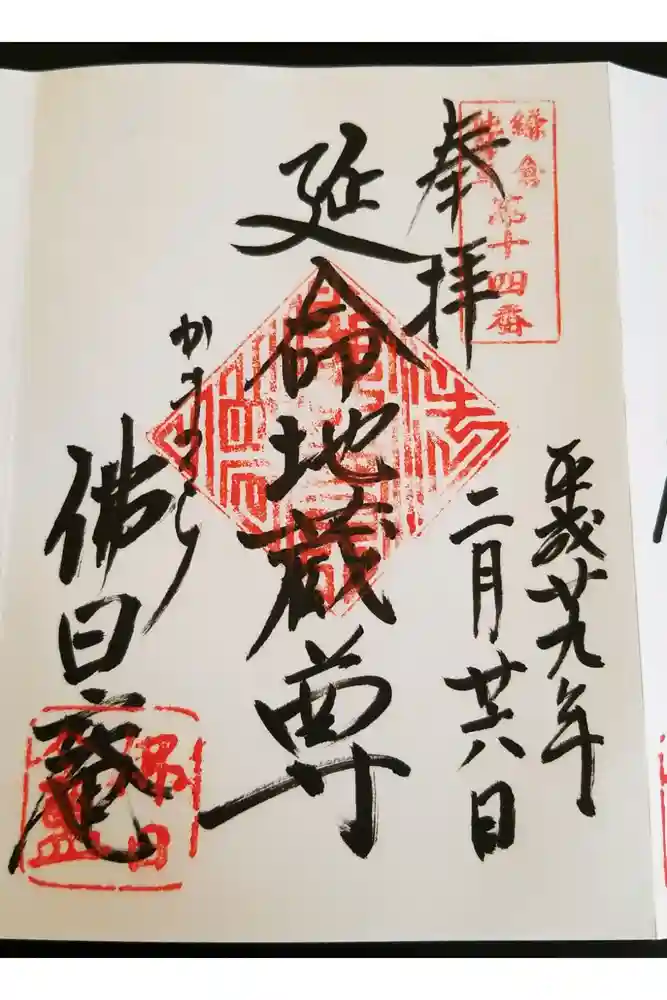 鎌倉
地蔵尊
第十四番
奉拝
平成廿九年
二月廿六日
延命地蔵尊
かまくら
佛日庵